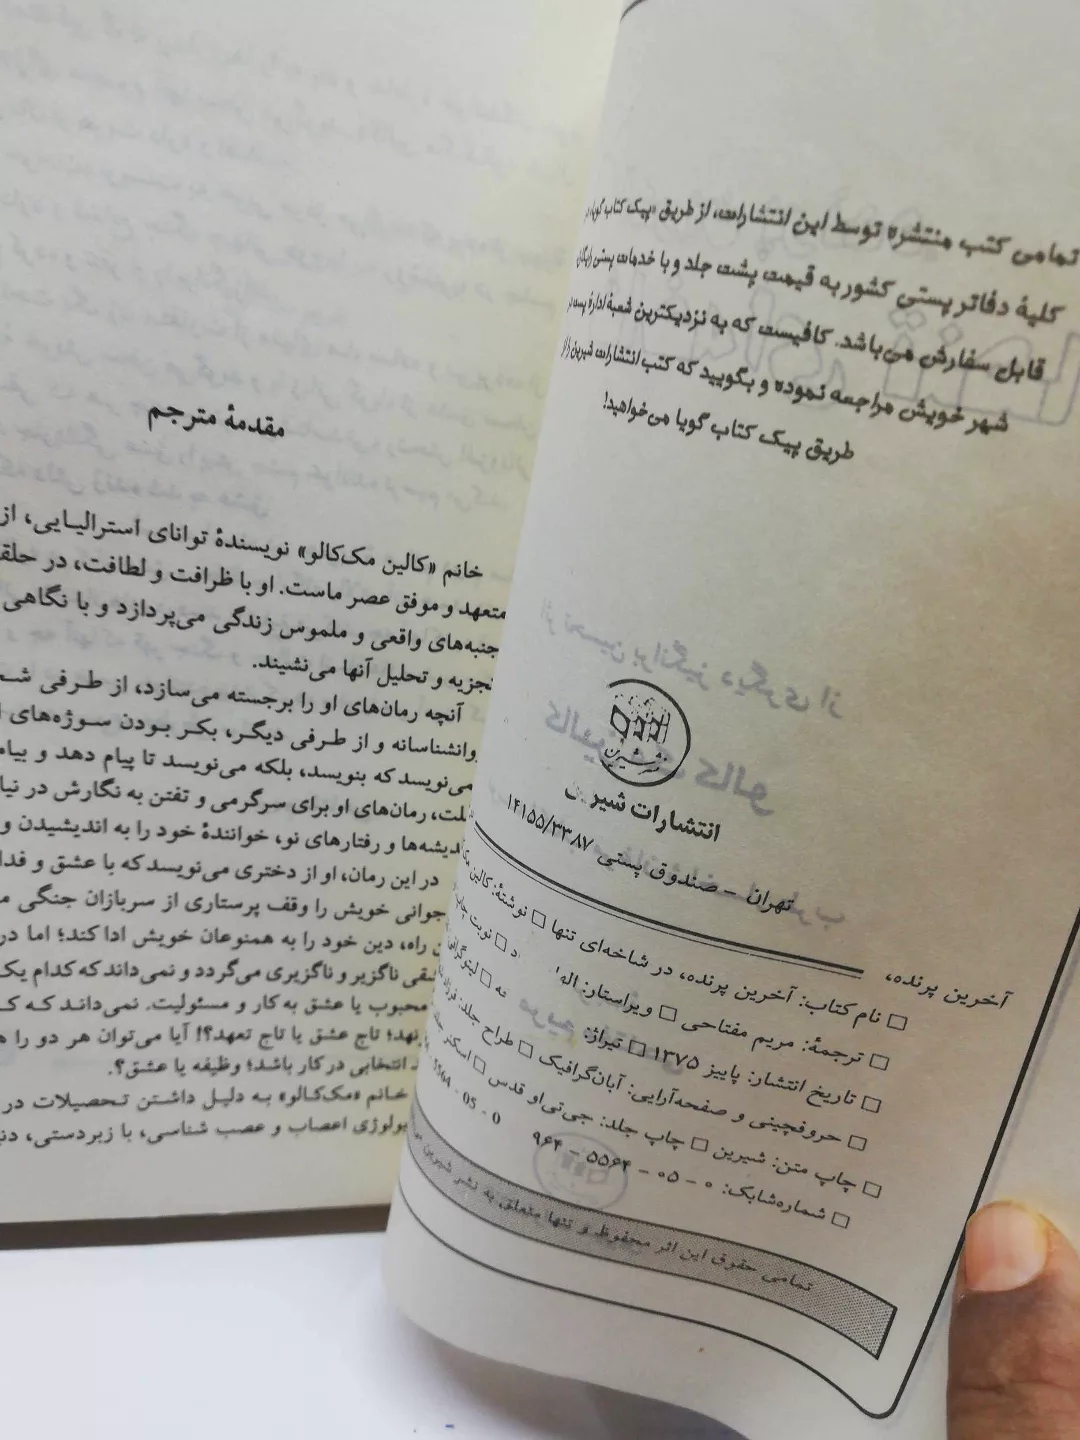 تمامی کتب منتشره توسط این انتشارات، از طریق «پیک کتاب گویا»
کلیهٔ دفاتر پستی کشور به قیمت پشت جلد و با خدمات پستی رایگان
قابل سفارش می‌باشد. کافیست که به نزدیکترین شعبهٔ ادارهٔ پست
شهر خویش مراجعه نموده و بگویید که کتب انتشارات شیرین را از
طریق پیک کتاب گویا می‌خواهید!
نشر شیرین
انتشارات شیر
تهران – صندوق پستی ۱۴۱۵۵/۳۳۸۷
آخرین پرنده،
□ نام کتاب: آخرین پرنده، در شاخه‌ای تنها □ نوشتهٔ: کالین مک
□ ترجمهٔ: مریم مفتاحی □ ویراستار: الها
□ تاریخ انتشار: پاییز ۱۳۷۵ □ تیراژ:
د □ نوبت چاپ
□ حروفچینی و صفحه‌آرایی: آبان‌گرافیک □ طراح جلد: فرزاد
□ چاپ متن: شیرین □ چاپ جلد: جی‌تی‌او قدس □ اسکنر
□ شماره‌شابک: ۰ – ۰۵ – ۵۵۶۴ – ۹۶۴
تمامی حقوق این اثر محفوظ و تنها متعلق به نشر شیرین
مقدمهٔ مترجم
خانم «کالین مک‌کالو» نویسندهٔ توانای استرالیایی، از
متعهد و موفق عصر ماست. او با ظرافت و لطافت، در حلقـ
جنبه‌های واقعی و ملموس زندگی می‌پردازد و با نگاهی
تجزیه و تحلیل آنها می‌نشیند.
آنچه رمان‌های او را برجسته می‌سازد، از طرفی
وانشناسانه و از طرفی دیگر، بکر بودن سوژه‌های
می‌نویسد که بنویسد، بلکه می‌نویسد تا پیام دهد و
لت، رمان‌های او برای سرگرمی و تفتن به نگارش در
دیشه‌ها و رفتارهای نو، خوانندهٔ خود را به اندیشیدن و
در این رمان، او از دختری می‌نویسد که با عشق و
جوانی خویش را وقف پرستاری از سربازان جنگی
راه، دین خود را به همنوعان خویش ادا کند؛ اما در
شقی ناگزیر و ناگزیری می‌گردد و نمی‌داند که کدام یک
محبوب یا عشق به کار و مسئولیت. نمی‌داند که
نهد؛ تاج عشق یا تاج تعهد؟! آیا می‌توان هر دو را
انتخابی در کار باشد؛ وظیفه یا عشق؟.
خانم «مک‌کالو» به دلیل داشتن تحصیلات در
یولوژی اعصاب و عصب شناسی، با زبردستی،